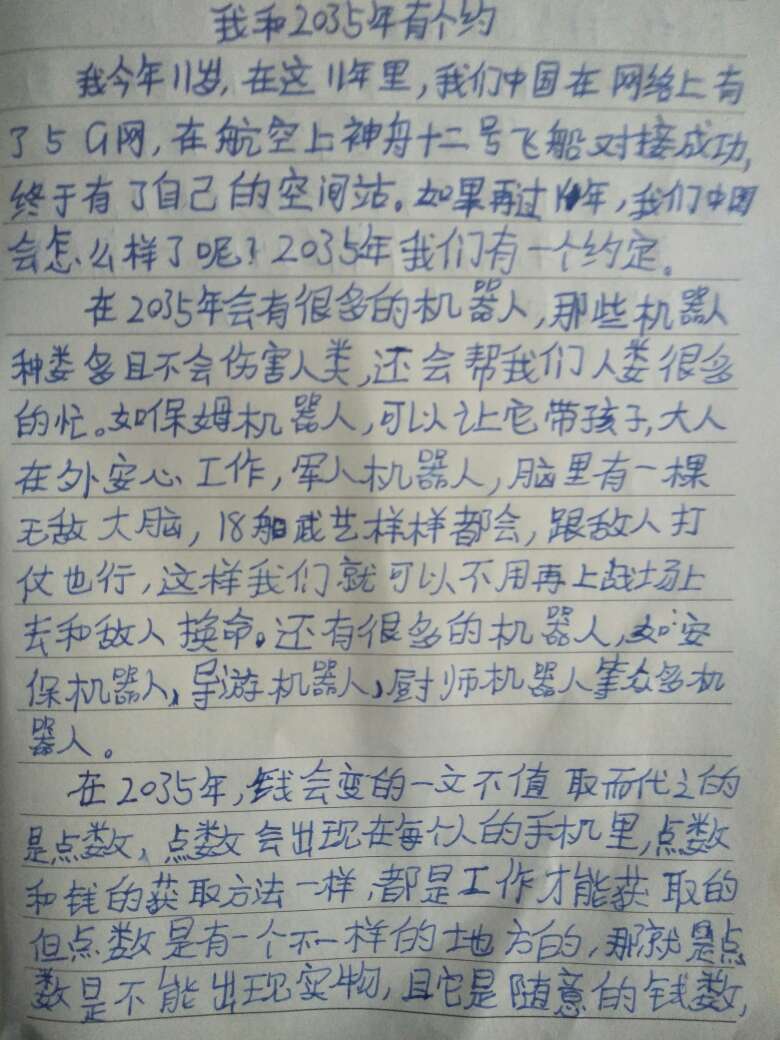 我和2035年有个约
我今年11岁,在这11年里,我们中国在网络上有
了5G网,在航空上神舟十二号飞船对接成功,
终于有了自己的空间站。如果再过年,我们中国
会怎么样了呢?2035年我们有一个约定。
在2035年会有很多的机器人,那些机器人
种娄多且不会伤害人类,还会帮我们人娄很多
的忙。如保姆机器人,可以让它带孩子,大人
在外安心工作,军人机器人,脑里有一棵
无敌大脑,18船武艺样样都会,跟敌人打
仗也行,这样我们就可以不用再上战场上
去和敌人换命。还有很多的机器人,如安
保机器人,导游机器人,厨师机器人等众多机
器人。
在2035年,钱会变的一文不值取而代之的
是点数,点数会出现在每个人的手机里,点数
和钱的获取方法一样,都是工作才能获取的
但点数是有一个不一样的地方的,那就是点
数是不能出现实物,且它是随意的钱数,